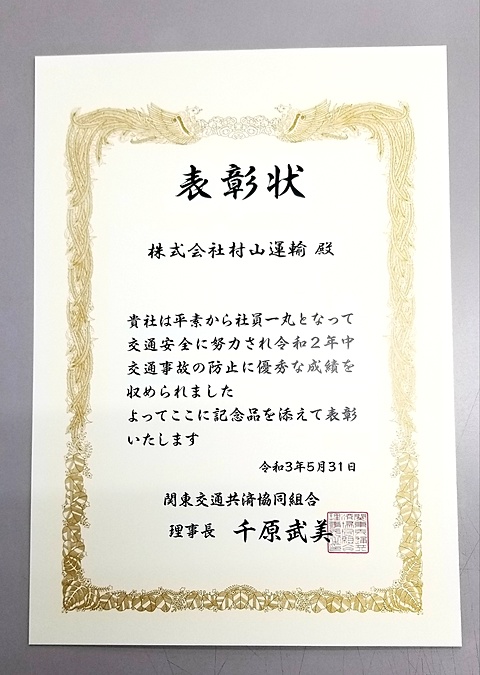 表彰状
株式会社村山運輸 殿
貴社は平素から社員一丸となって
交通安全に努力され令和2年中
交通事故の防止に優秀な成績を
収められました
よってここに記念品を添えて表彰
いたします
令和3年5月31日
関東交通共済協同組合
理事長 千原武美